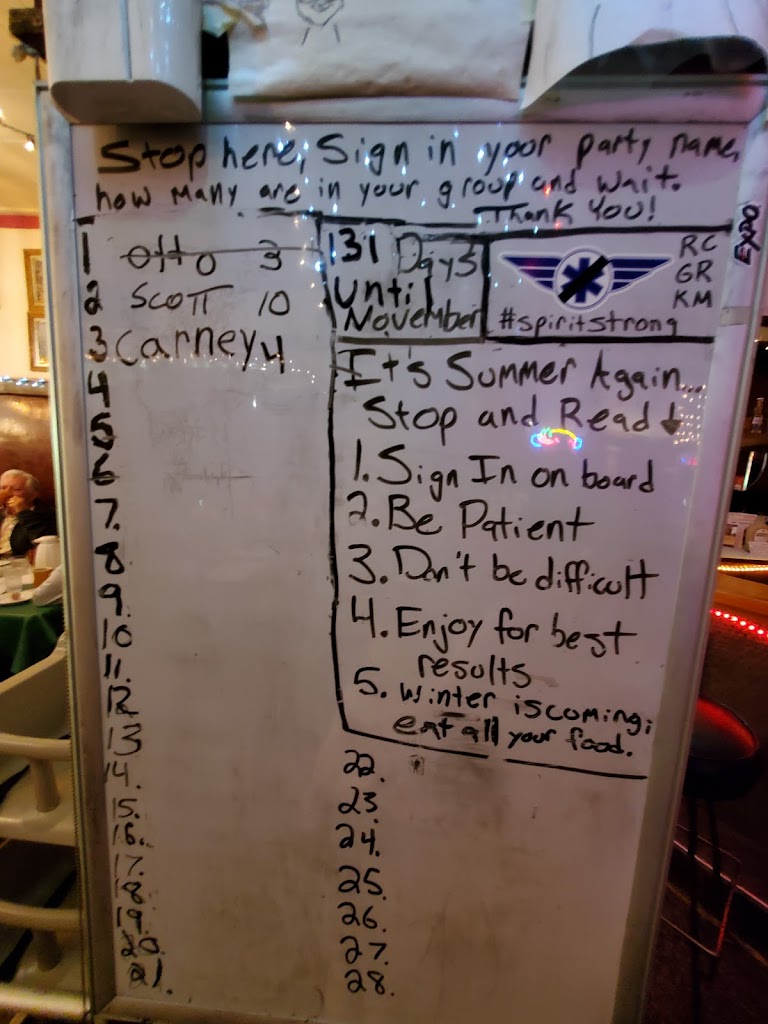 Stop here, Sign in your party name,
how many are in your group and wait.
Thank You!
EXPO
1 Otto 3
2 Scott 10
3 Carney 4
4
5
6
7.
8
9.
10
11.
12
13
14.
15.
16.
17.
18
19.
20.
21.
131 Days
Until
November
RC
GR
KM
#spiritstrong
It's Summer Again...
Stop and Read ↓
1. Sign In on board
2. Be Patient
3. Don't be difficult
4. Enjoy for best
results
5. Winter is coming;
eat all your food.
22.
23
24.
25.
26.
27.
28.